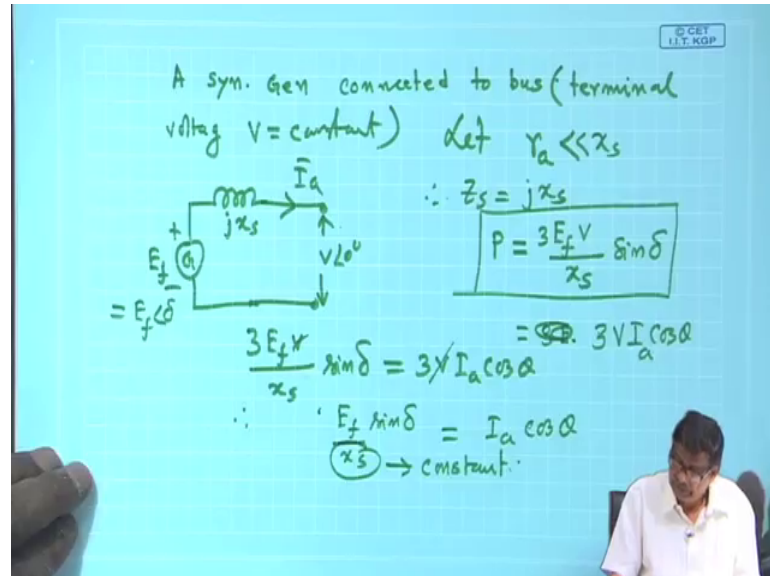 © CET
I.I.T. KGP
A syn. Gen connected to bus (terminal
voltag V = constant) Let ra << xs
Īa
∴ Zs = jxs
jxs
+
Ef
G
V∠0°
= Ef∠δ
P = 3EfV/xs sinδ
= 3VIa cosθ
3EfV/xs sinδ = 3VIa cosθ
∴ Ef sinδ/xs = Ia cosθ
→ constant.